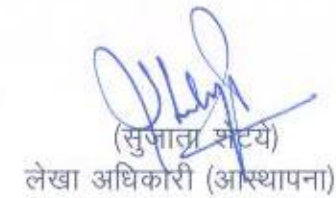 (सुजाता शेटये)
लेखा अधिकारी (आस्थापना)